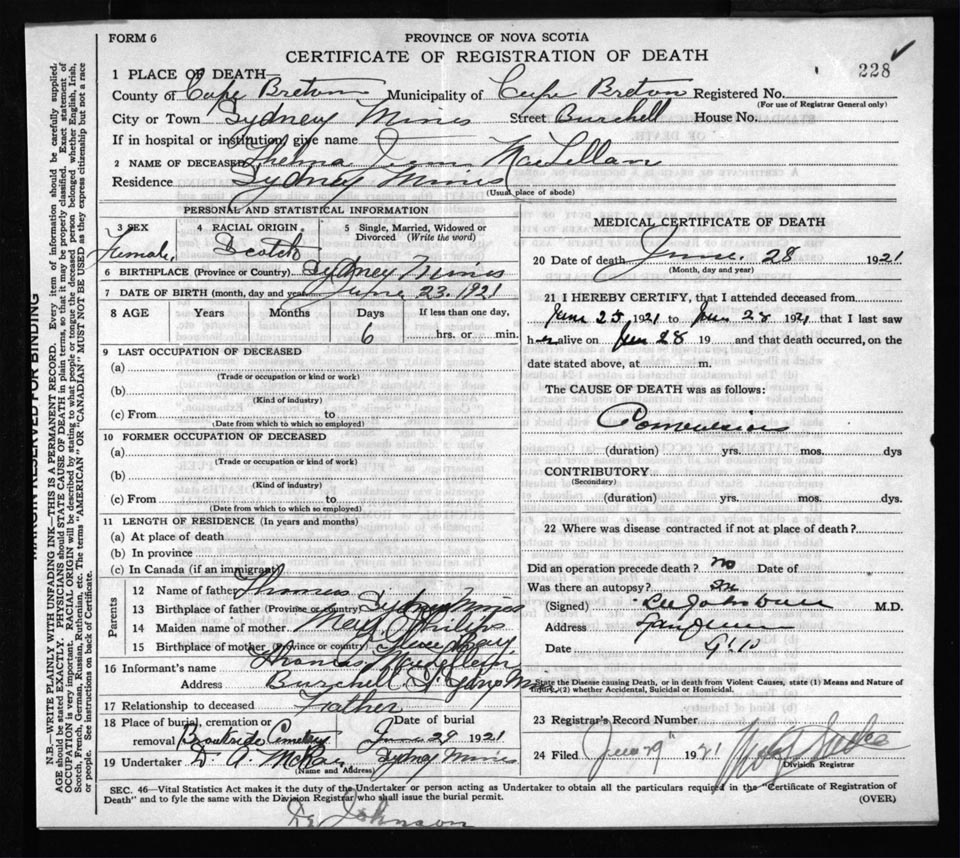 FORM 6
PROVINCE OF NOVA SCOTIA
CERTIFICATE OF REGISTRATION OF DEATH
228
1 PLACE OF DEATH—
County of Cape Breton Municipality of Cape Breton Registered No.
(For use of Registrar General only)
City or Town Sydney Mines Street Burchell House No.
If in hospital or institution, give name
2 NAME OF DECEASED Thelma MacLellan
Residence Sydney Mines
(Usual place of abode)
PERSONAL AND STATISTICAL INFORMATION
3 SEX 4 RACIAL ORIGIN 5 Single, Married, Widowed or Divorced (Write the word)
Female, Scotch
6 BIRTHPLACE (Province or Country) Sydney Mines
7 DATE OF BIRTH (month, day and year) June 23. 1921
8 AGE Years Months Days If less than one day,
6 hrs. or min.
9 LAST OCCUPATION OF DECEASED
(a)
(Trade or occupation or kind or work)
(b)
(Kind of industry)
(c) From to
(Date from which to which so employed)
10 FORMER OCCUPATION OF DECEASED
(a)
(Trade or occupation or kind of work)
(b)
(Kind of industry)
(c) From to
(Date from which to which so employed)
11 LENGTH OF RESIDENCE (In years and months)
(a) At place of death
(b) In province
(c) In Canada (if an immigrant)
Parents
12 Name of father Thomas
13 Birthplace of father (Province or country) Sydney Mines
14 Maiden name of mother Mary Philips
15 Birthplace of mother (Province or country) Glace Bay
16 Informant's name Thomas
Address Burchell St Sydney Mines
17 Relationship to deceased Father
18 Place of burial, cremation or removal Brookside Cemetery Date of burial June 29 1921
19 Undertaker D. A. McRae Sydney Mines
(Name and Address)
MEDICAL CERTIFICATE OF DEATH
20 Date of death June. 28 1921
(Month, day and year)
21 I HEREBY CERTIFY, that I attended deceased from
June 25 1921 to June 28 1921 that I last saw
her alive on June 28 19 and that death occurred, on the
date stated above, at m.
The CAUSE OF DEATH was as follows:
Convulsions
(duration) yrs. mos. dys
CONTRIBUTORY
(Secondary)
(duration) yrs. mos. dys.
22 Where was disease contracted if not at place of death?
Did an operation precede death? no Date of
Was there an autopsy? no
(Signed) M.D.
Address
Date
State the Disease causing Death, or in death from Violent Causes, state (1) Means and Nature of
Injury, (2) whether Accidental, Suicidal or Homicidal.
23 Registrar's Record Number
24 Filed June 29th 1921
Division Registrar
SEC. 46—Vital Statistics Act makes it the duty of the Undertaker or person acting as Undertaker to obtain all the particulars required in the "Certificate of Registration of
Death" and to fyle the same with the Division Registrar who shall issue the burial permit.
(OVER)
Dr Johnson
MARGIN RESERVED FOR BINDING
N.B.—WRITE PLAINLY WITH UNFADING INK—THIS IS A PERMANENT RECORD. Every item of information should be carefully supplied.
AGE should be stated EXACTLY. PHYSICIANS should STATE CAUSE OF DEATH in plain terms, so that it may be properly classified. Exact statement of
OCCUPATION is very important. RACIAL ORIGIN will be described by stating to what people or tongue the deceased person belonged whether English, Irish,
Scotch, French, German, Russian, Ruthenian, etc. The terms "AMERICAN" OR "CANADIAN" MUST NOT BE USED as they express citizenship but not a race
or people. See instructions on back of Certificate.